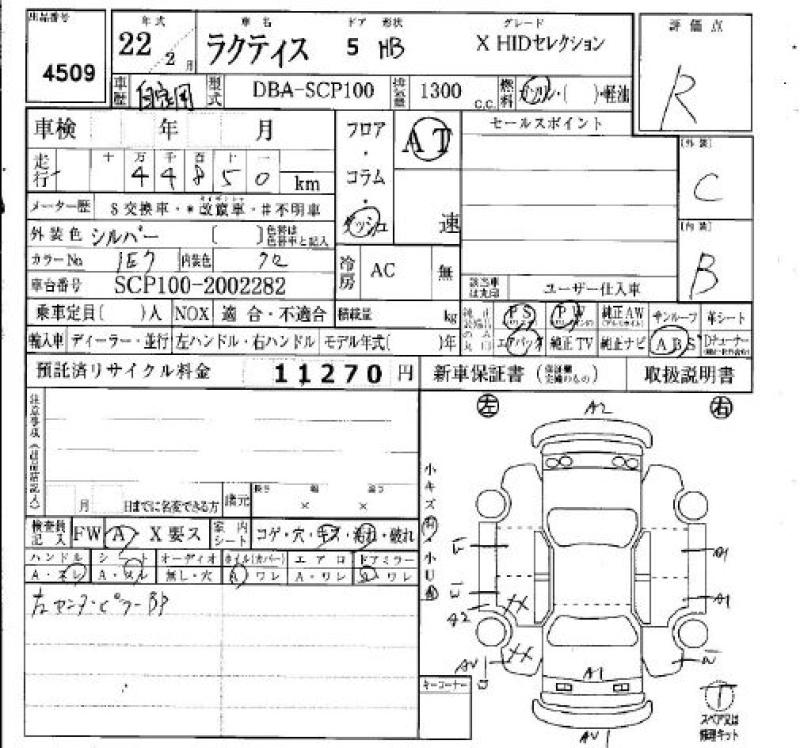 出品番号 4509
年式 22年 2月
車名 ラクティス
ドア 形状 5 HB
グレード X HIDセレクション
評価点 R
車歴 自家用
型式 DBA-SCP100
排気量 1300 c.c.
燃料 ガソリン・( )・軽油
車検 年 月
フロア・コラム・ダッシュ
AT
速
セールスポイント
[外装] C
[内装] B
走行 十 万 千 百 十 一
4 4 8 5 0 km
メーター歴 $交換車・*改竄車・#不明車
外装色 シルバー [ ] 色替は色替車と記入
カラーNo 1E7 内装色 クロ
冷房 AC 無
車台番号 SCP100-2002282
該当車は丸印 ユーザー仕入車
乗車定員( )人 NOX 適合・不適合 積載量 kg
PS PW 純正AW サンルーフ 革シート
輸入車 ディーラー・並行 左ハンドル・右ハンドル モデル年式( )年
エアバッグ 純正TV 純正ナビ ABS Dチューナー
預託済リサイクル料金 11270円
新車保証書 取扱説明書
注意事項(出品店記入)
月 日までに名変できる方
諸元 長さ 幅 高さ × ×
検査員記入 FW A X 要ス
車内シート コゲ・穴・キズ・汚れ・破れ
ハンドル シート オーディオ ホイル(カバー) エアロ ドアミラー
A・スレ A・スレ 無し・穴 A ワレ A・ワレ A ワレ
左センターピラーBP
左 右
小キズ有 小U有
A2
A1
A1
A2
A1
AU1
キーコーナー
スペア又は修理キット